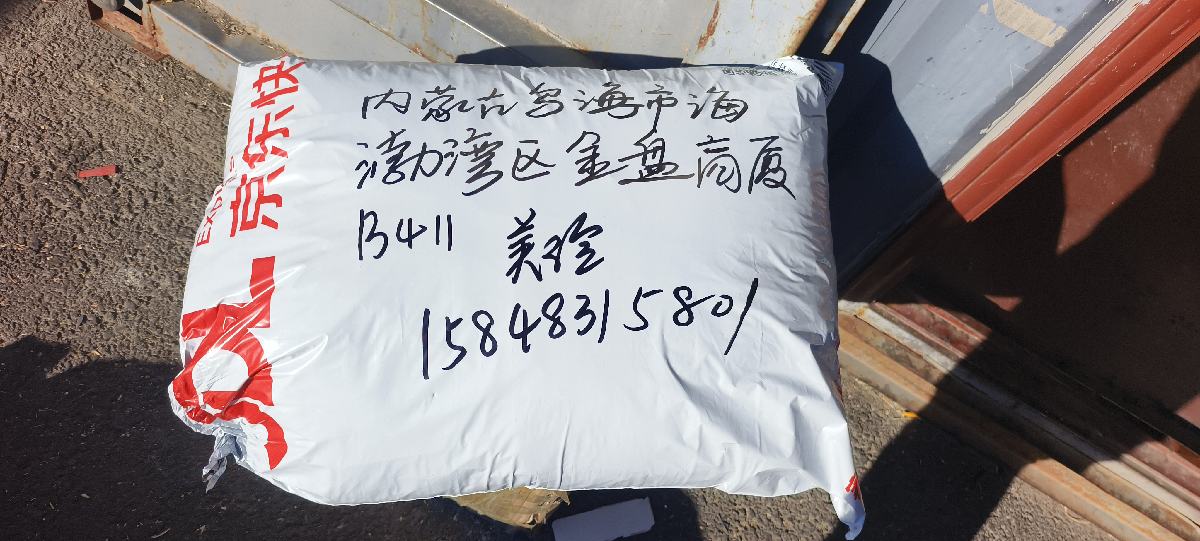 内蒙古乌海市海
渤湾区金盘商厦
B411 美玲
15848315801
京东快
EXPRESS
JDL